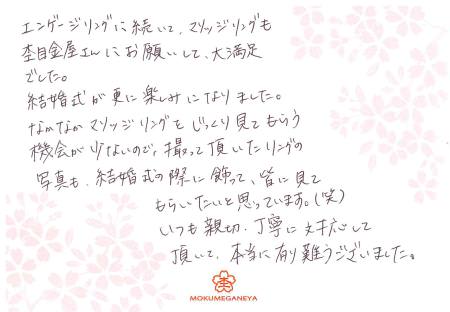 エンゲージリングに続いて、マリッジリングも
杢目金屋さんにお願いして、大満足
でした。
結婚式が更に楽しみになりました。
なかなかマリッジリングをじっくり見てもらう
機会が少ないので、撮って頂いたリングの
写真も、結婚式の際に飾って、皆に見て
もらいたいと思っています。(笑)
いつも親切、丁寧に対応して
頂いて、本当に有り難うございました。
MOKUMEGANEYA